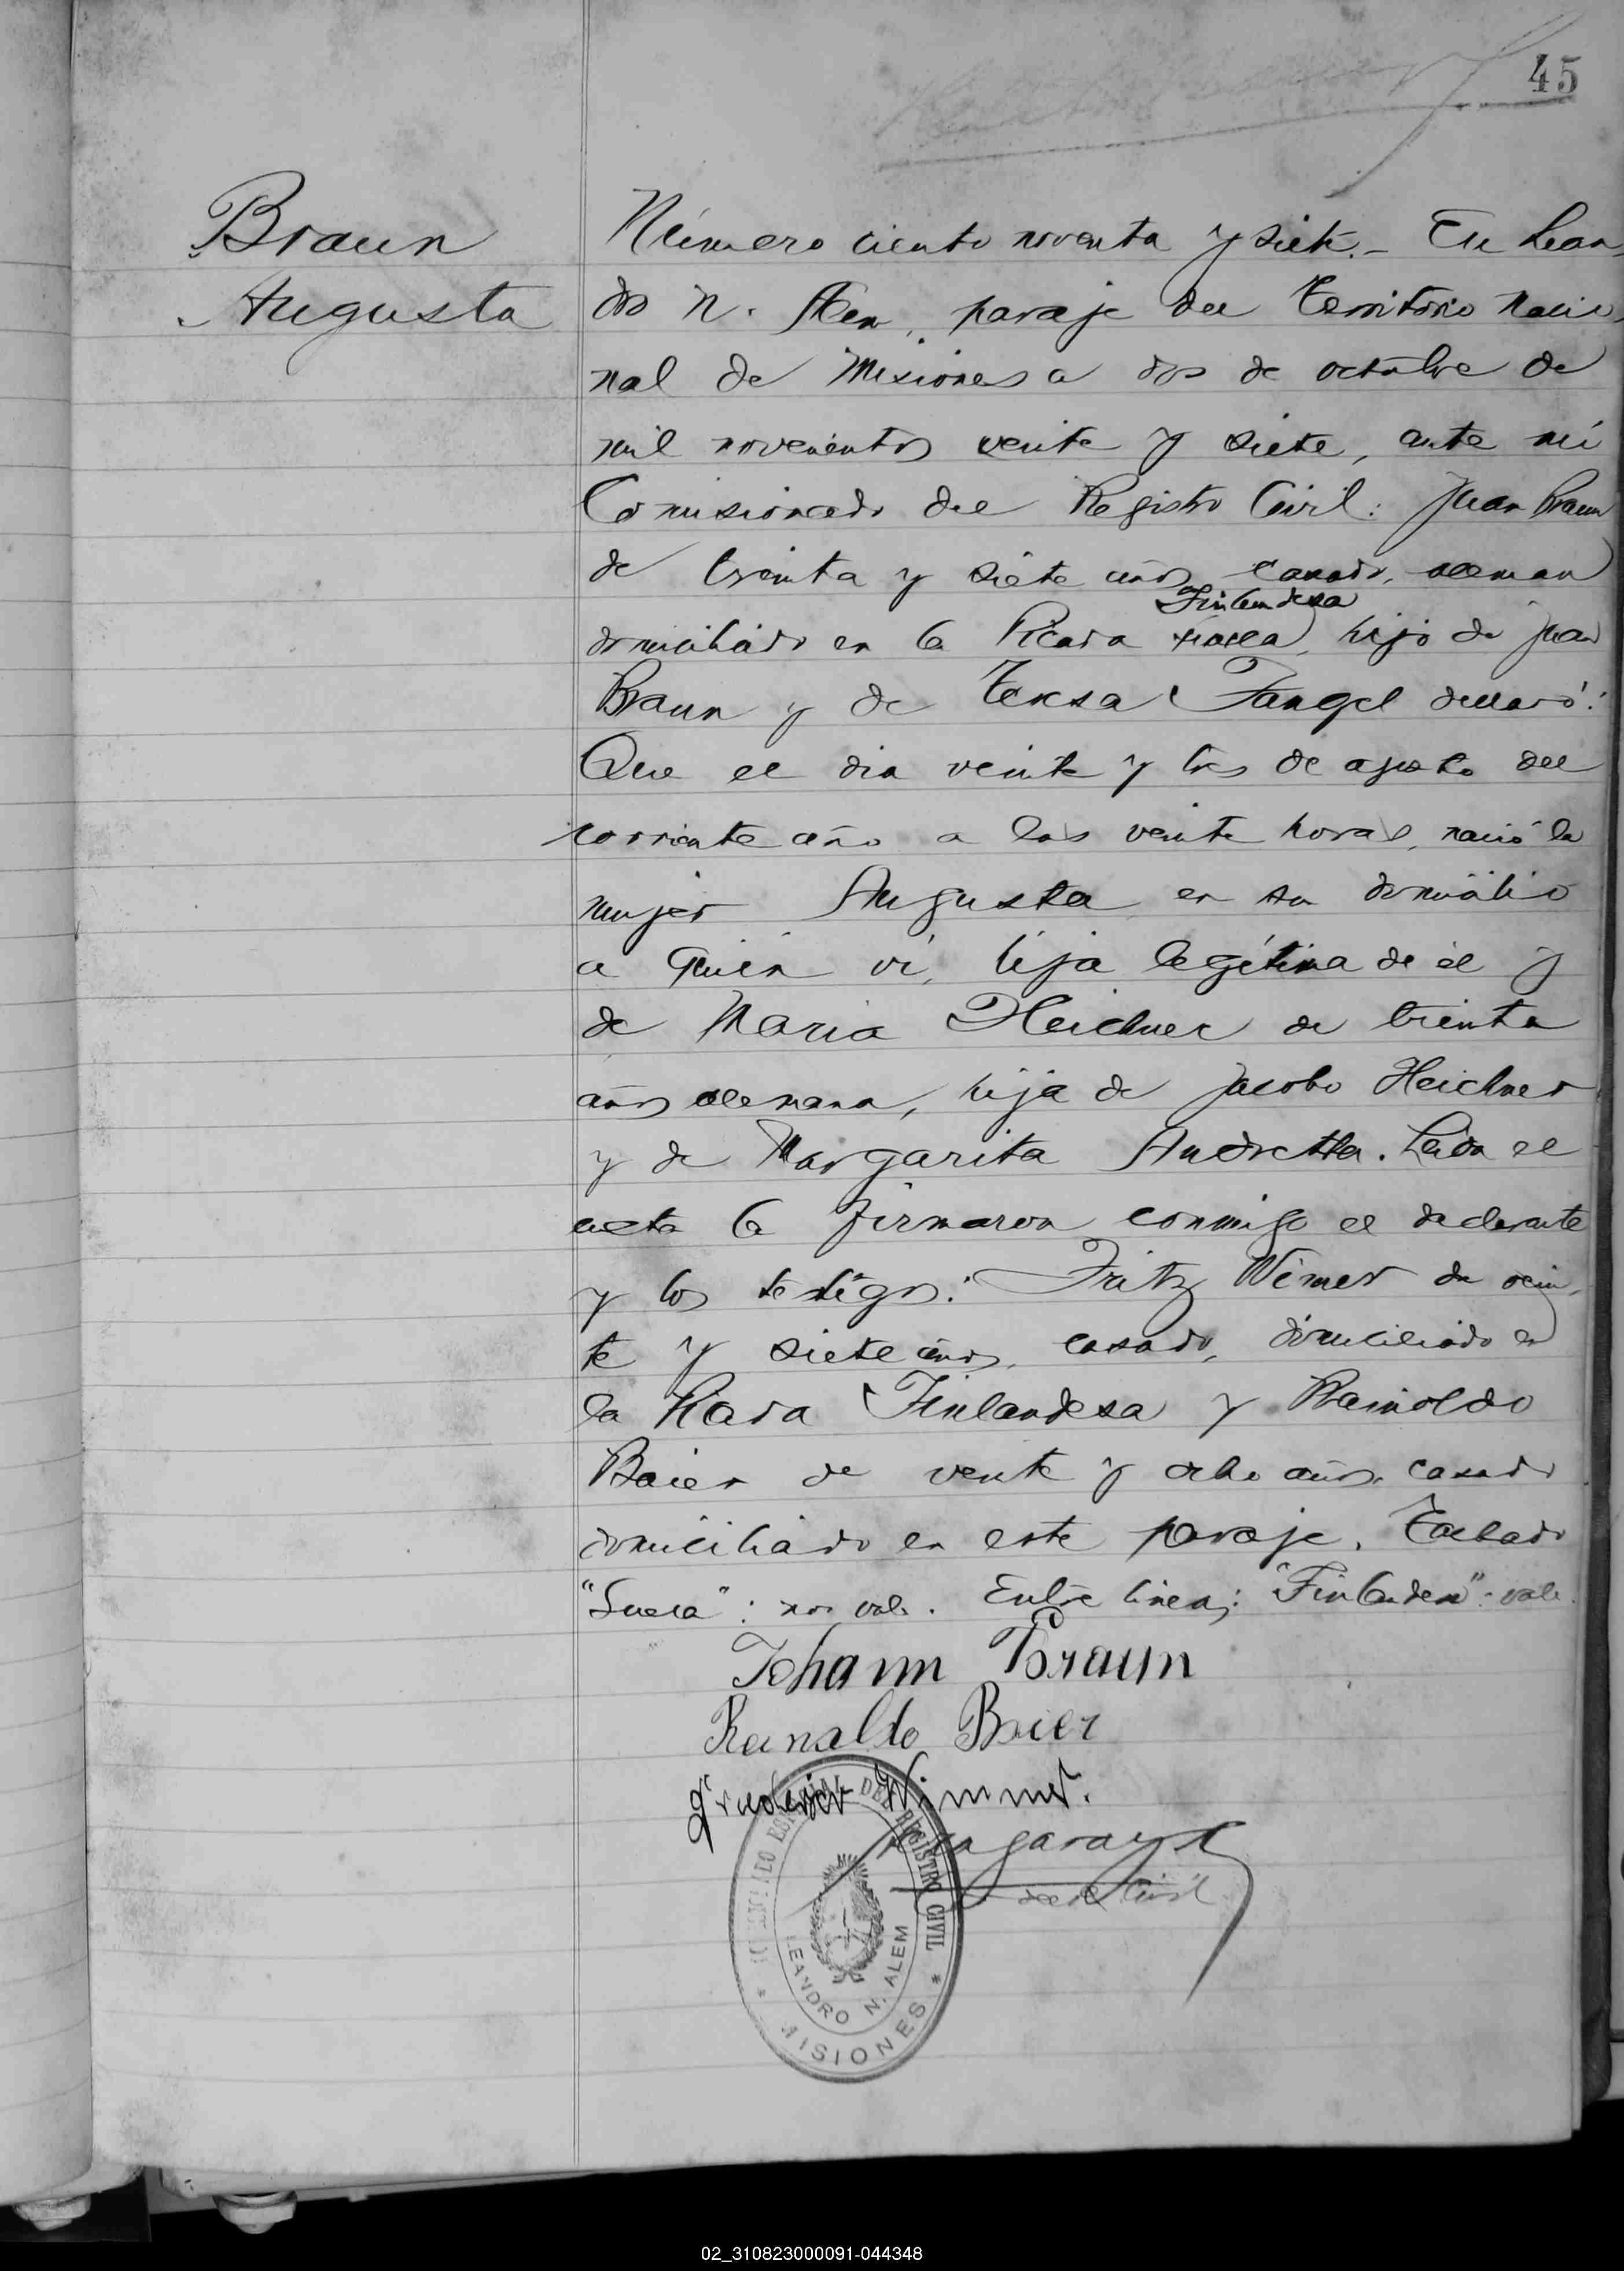 45
Braun
Augusta
Número ciento noventa y siete.- En Lean
dro N. Alem, paraje del Territorio Nacio
nal de Misiones a dos de octubre de
mil novecientos veinte y siete, ante mi
Comisionado del Registro Civil: Juan Braun
de treinta y siete años casado, aleman
Finlandesa
domiciliado en la Picada Sueca, hijo de Juan
Braun y de Teresa Fangel declaró:
Que el dia veinte y tres de agosto del
corriente año a las veinte horas, nació la
mujer Augusta en su domicilio
a quien vi, hija legítima de él y
de Maria Heichner de treinta
años alemana, hija de Jacobo Heichner
y de Margarita Andretta. Leida el
acta la firmaron conmigo el declarante
y los testigos: Fritz Wimer de vein
te y siete años, casado, domiciliado en
la Picada Finlandesa y Rainoldo
Baier de veinte y ocho años, casado
domiciliado en este paraje. Tachado
"Sueca": no vale. Entre lineas: "Finlandesa": vale.
Johann Braun
Reinaldo Baier
Wimmer.
DEL REGISTRO CIVIL
LEANDRO N. ALEM
* MISIONES *
02_310823000091-044348